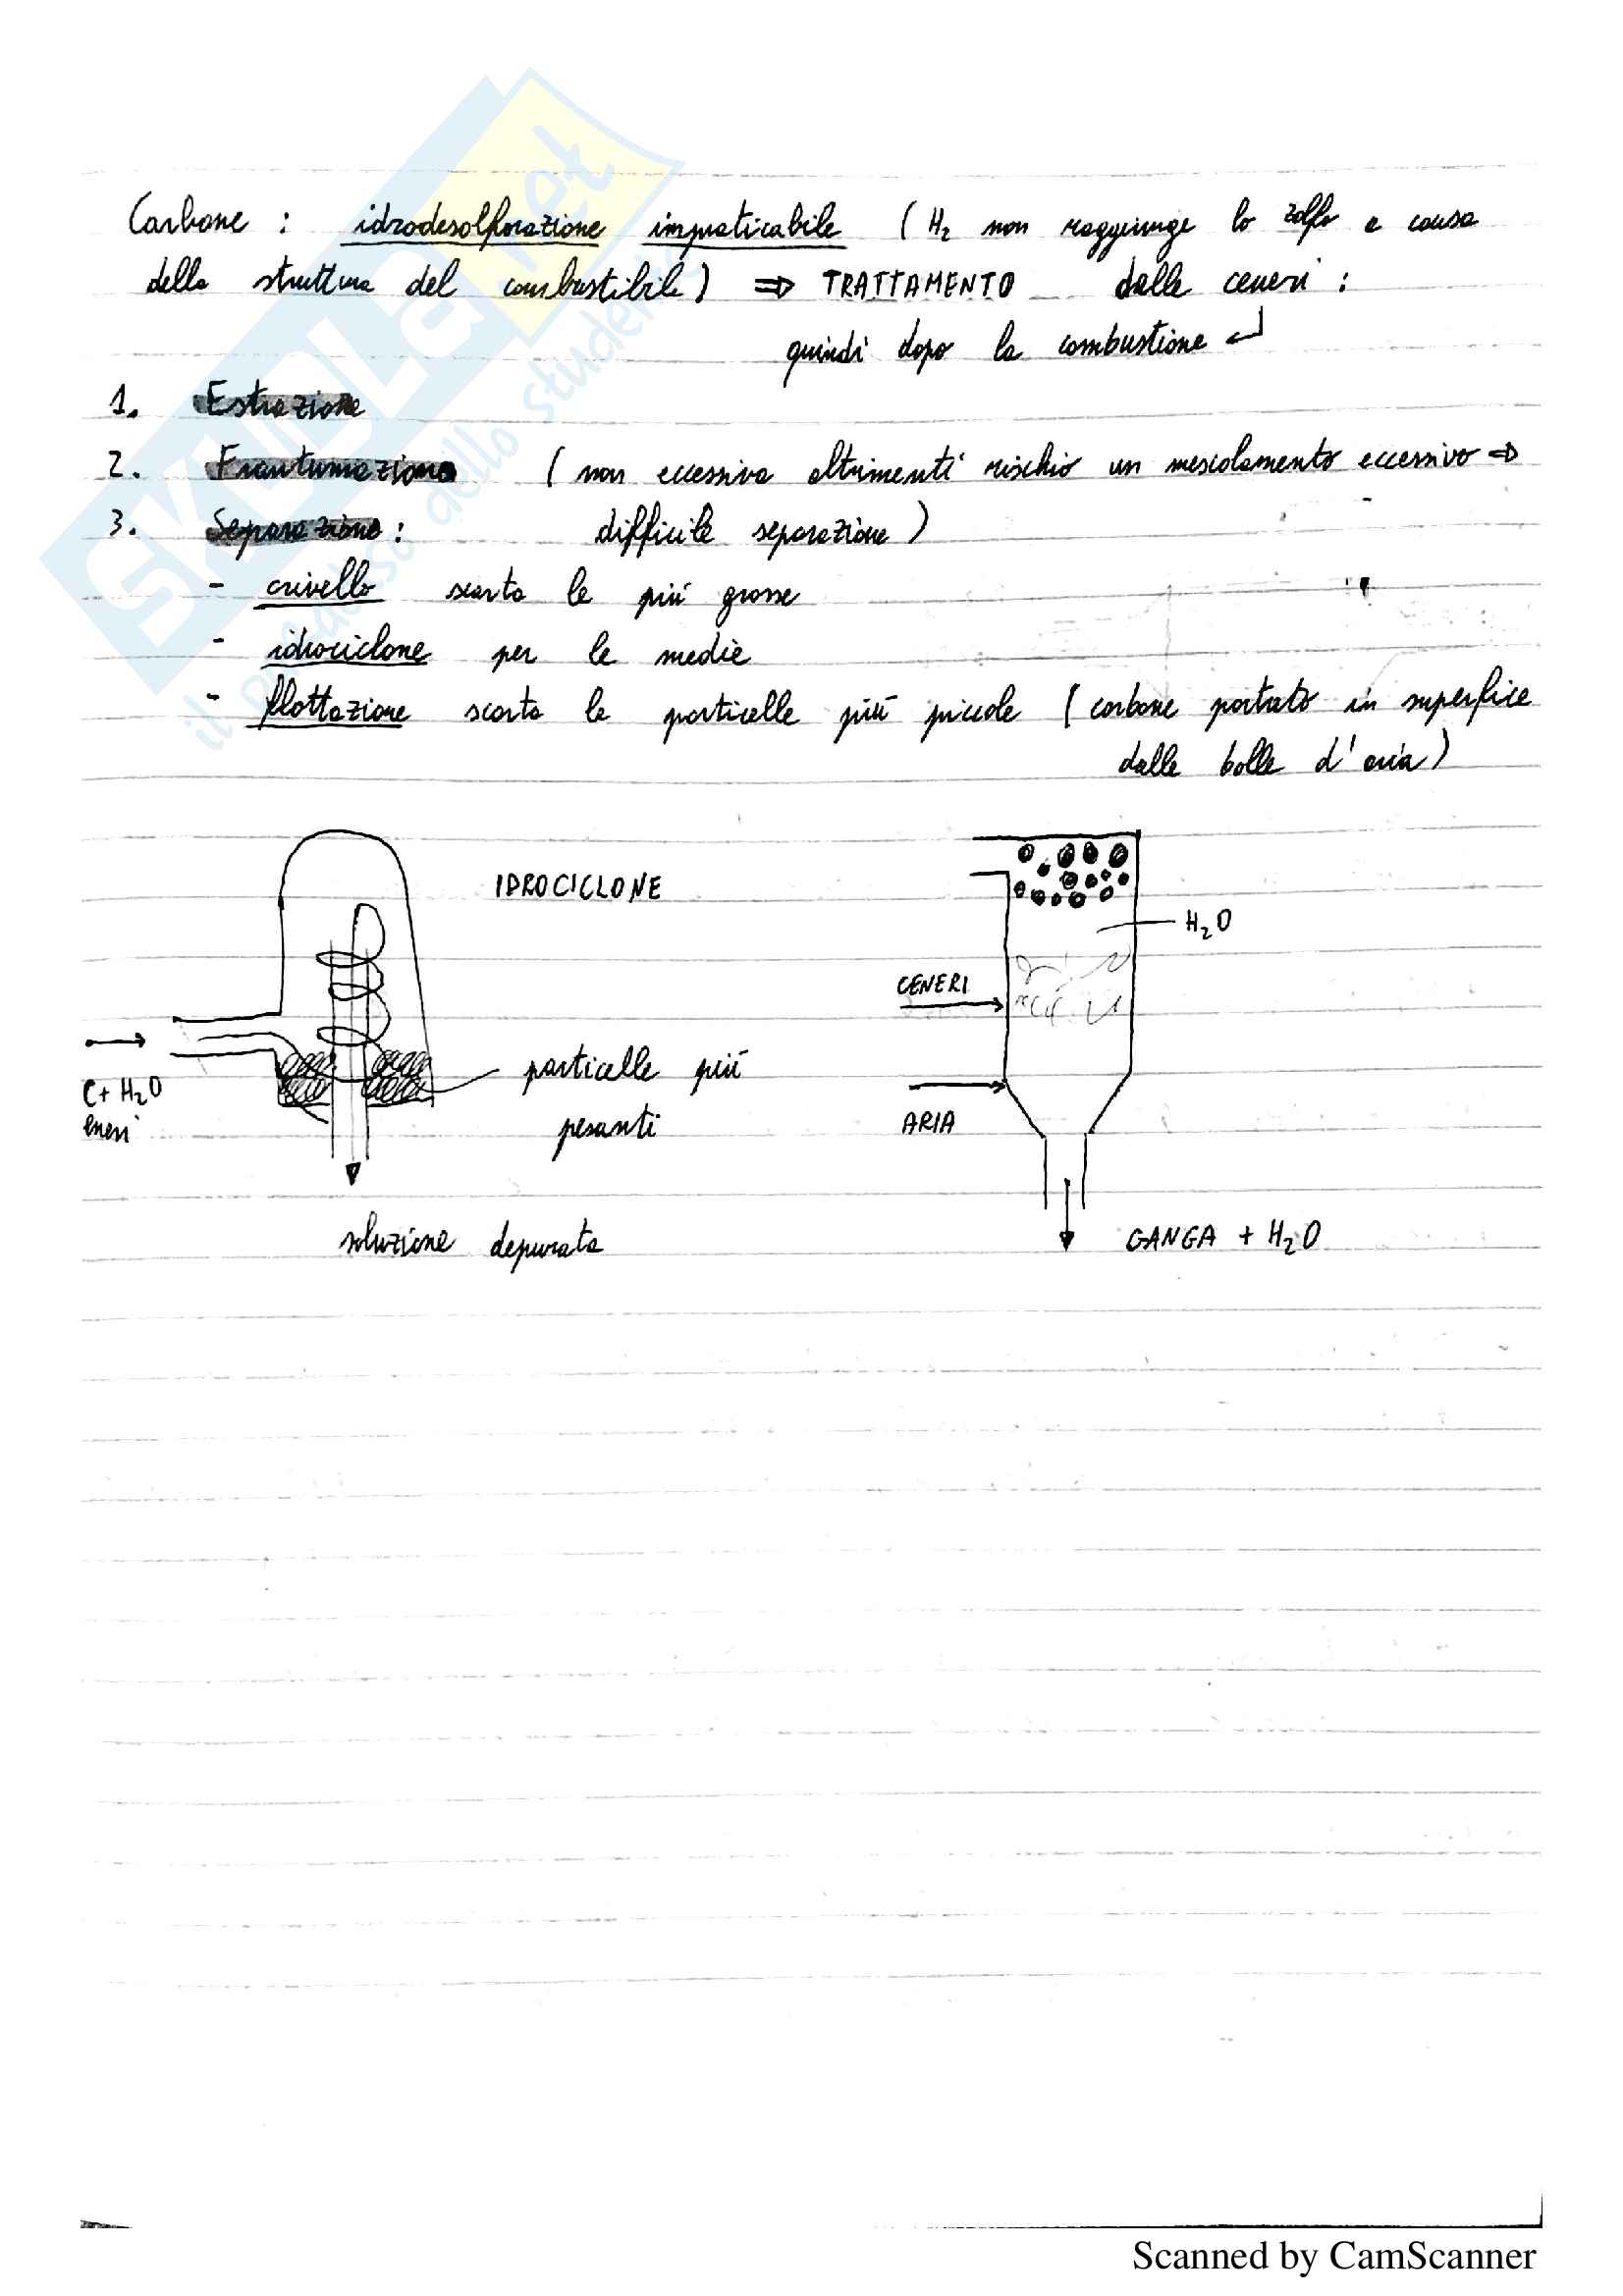 Carbone : idrodesolforazione impraticabile ( H2 non raggiunge lo zolfo a causa
della struttura del combustibile ) ⇒ TRATTAMENTO delle ceneri :
quindi dopo la combustione ↵
1. Estrazione
2. Frantumazione ( non eccessiva altrimenti rischio un mescolamento eccessivo ⇒
3. Separazione : difficile separazione )
- crivello scarta le più grosse
- idrociclone per le medie
- flottazione scarta le particelle più piccole ( carbone portato in superfice
dalle bolle d'aria )
IDROCICLONE
H2O
CENERI
particelle più
pesanti
C + H2O
ceneri
ARIA
soluzione depurata
GANGA + H2O
SKUOLA.net
il paradiso dello studente
Scanned by CamScanner